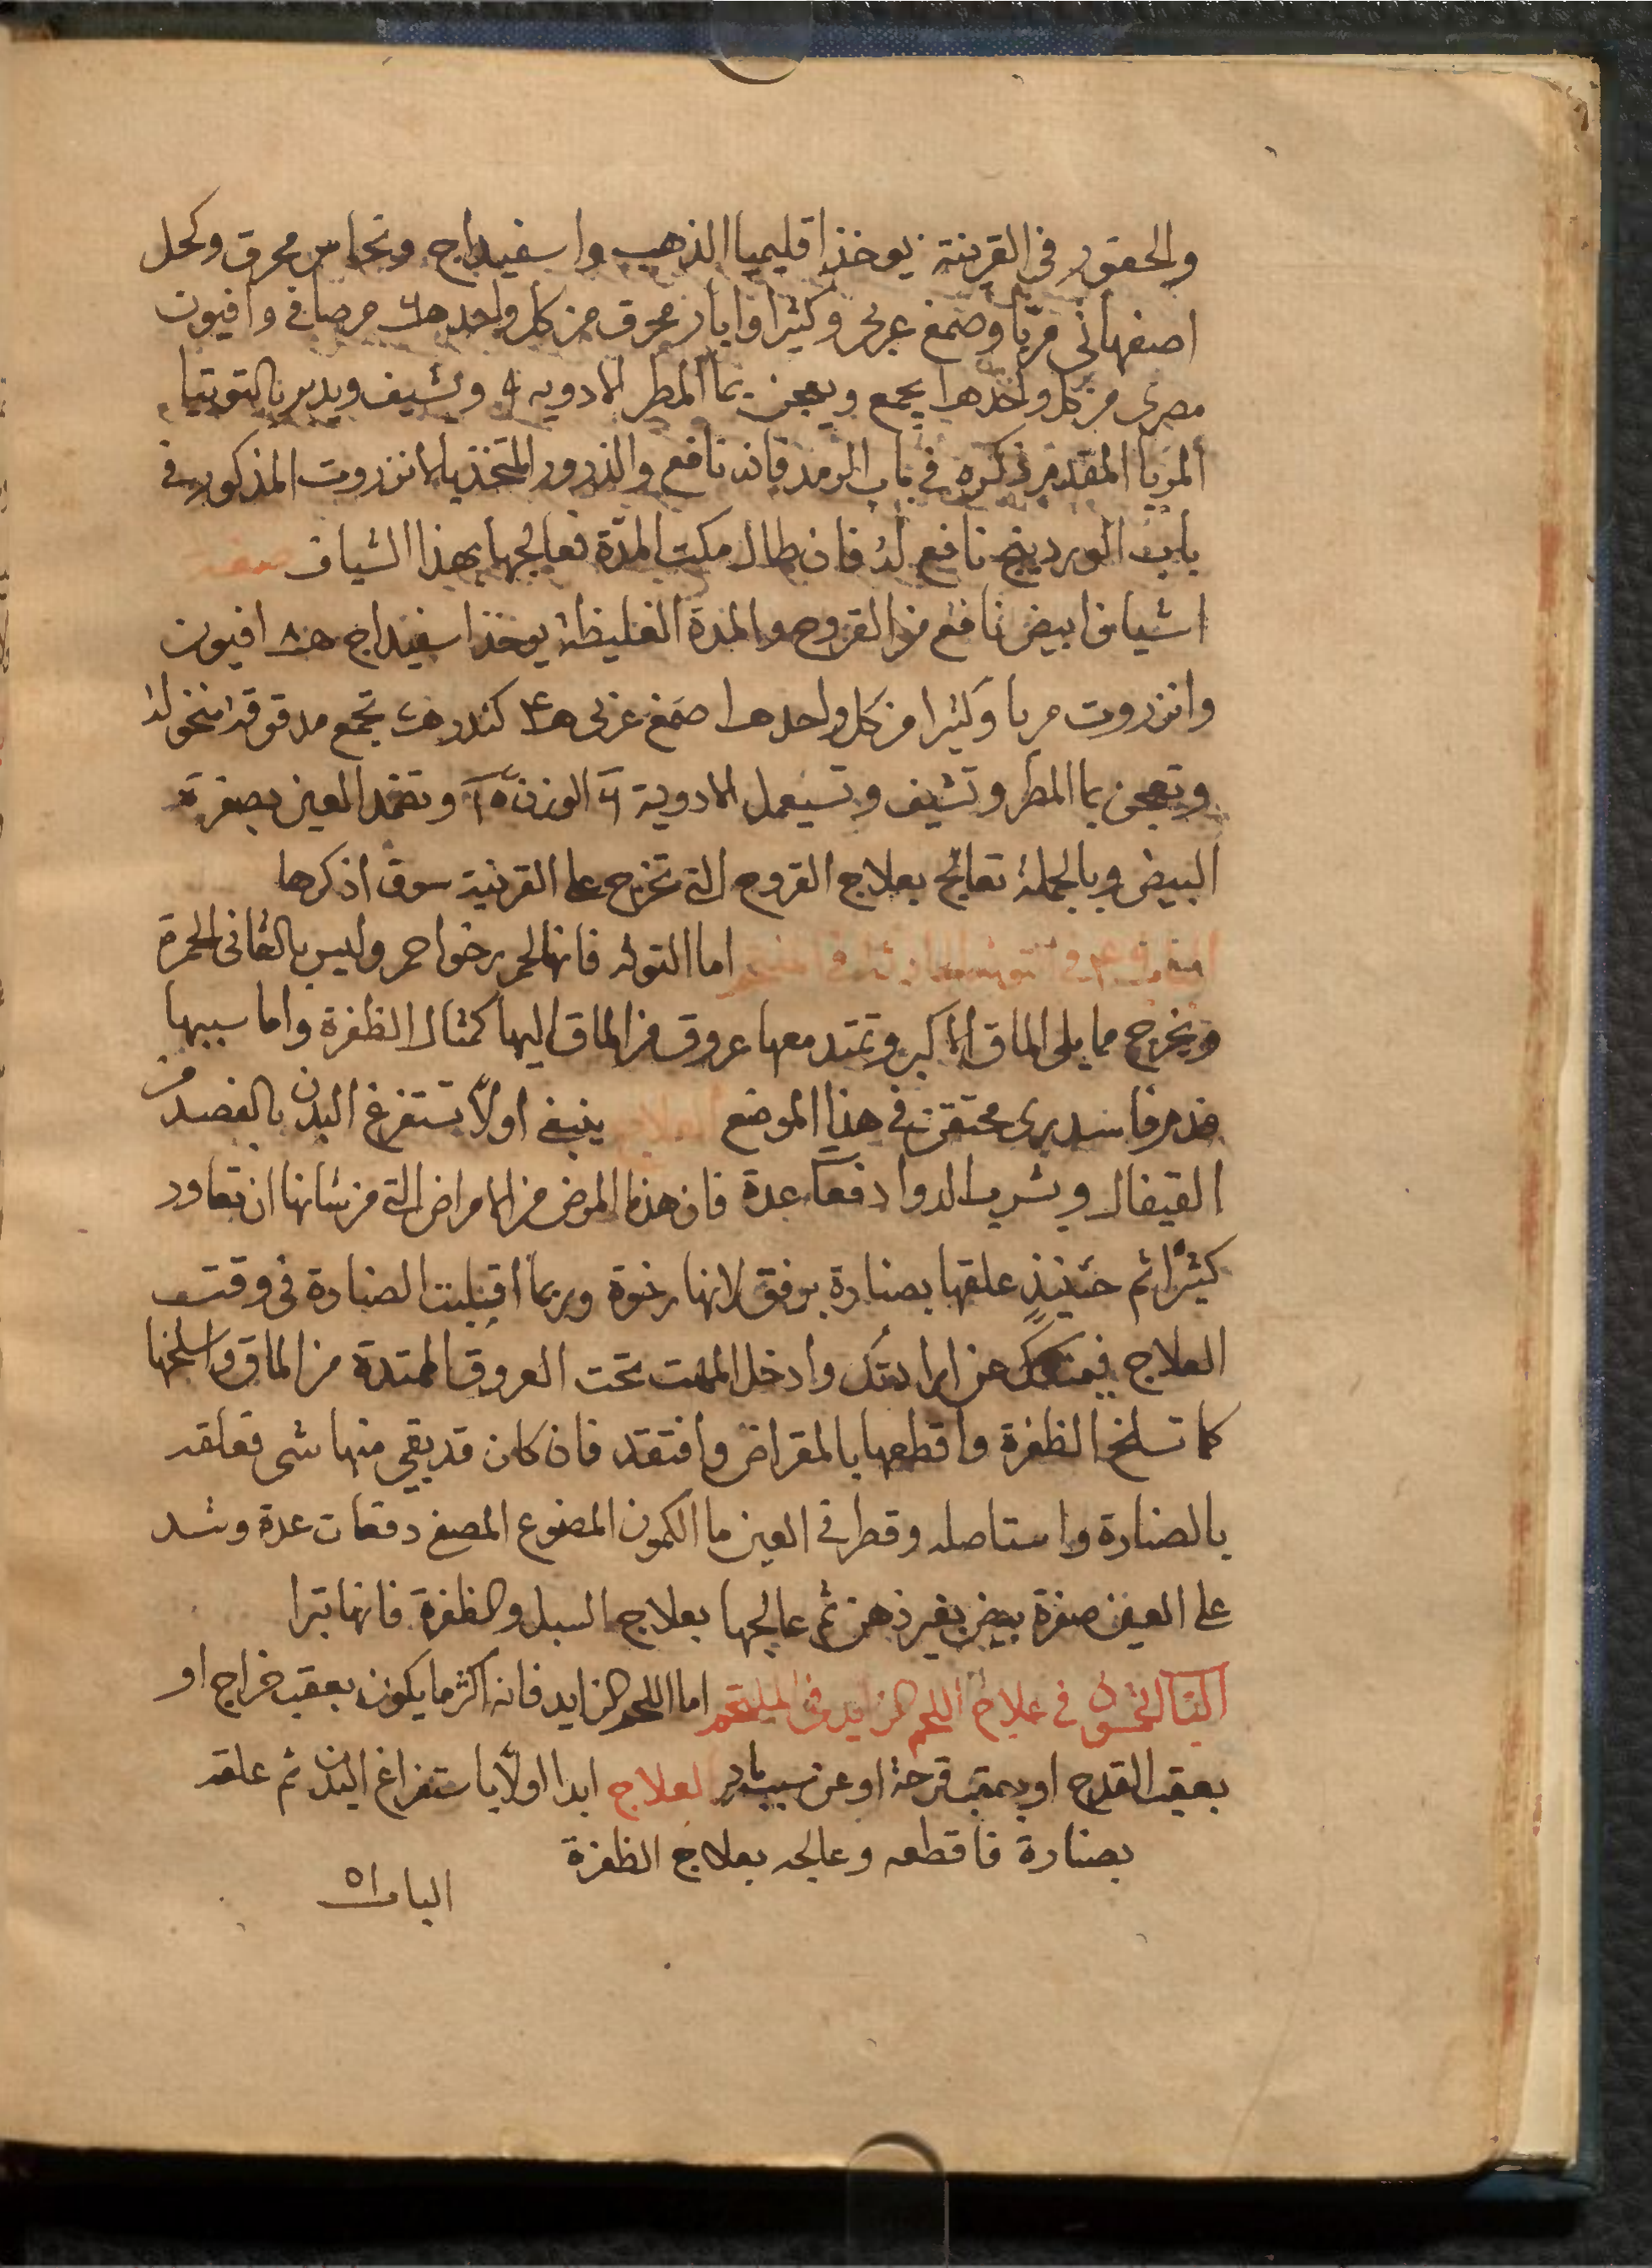 والحقور في القرنية يوخذ اقليميا الذهب واسفيداج ونحاس محرق وكحل
اصفهاني مربا وصمغ عربي وكثيرا وابار محرق من كل واحد مرصافي وافيون
مصري من كل واحد ه‍ا يجمع ويعجن بما المطر الادويه وتشيف ويدبر بالتوتيا
المربا المقدم ذكره في باب الرمد فانه نافع والذرور المتخذ بالانزروت المذكور في
باب الوردينج نافع له فان طال مكث المدة فعالجها بهذا الشياف صفة
اشياف ابيض نافع من القروح والمدة الغليظة يوخذ اسفيداج ه‍ ٨ افيون
وانزروت مربا وكثيرا من كل واحد ه‍ا صمغ عربي ه‍ ٤ كندر تجمع مدقوقة منخولة
وتعجن بما المطر وتشيف وتسيعمل الادوية ٦ الوزن ٥٦ وتضمد العين بصفرة
البيض وبالجملة تعالج بعلاج القروح التي تخرج على القرنية سوف اذكرها
اما التوثه فانها لحم رخو احمر وليس بالقاني الحمرة
ويخرج مما يلي الماق الاكبر وتمتد معها عروق من الماق اليها كمثال الظفرة واما سببها
فدم فاسد يرى محتقن في هذا الموضع العلاج ينبغي اولا تستفرغ البدن بالفصد من
القيفال ويشرب الدوا دفعات عدة فان هذا المرض من الامراض التي من شانها ان تعاود
كثيرا ثم حينيذ علقها بصنارة برفق لانها رخوة وربما اقبلبت الصنارة في وقت
العلاج فيمنعك عن ارادتك وادخل المهت تحت العروق الممتدة من الماق واسلخها
كما تسلخ الظفرة واقطعها بالمقراض وافتقد فان كان قد بقي منها شي فعلقه
بالصنارة واستاصله وقطر في العين ما الكمون المضوع المصفى دفعات عدة وشد
على العين صفرة بيض بغير ذهن ثم عالجها بعلاج السبل والظفرة فانها تبرا
البا الخمسون في علاج اللحم الزايد في الملتحم اما اللحم الزايد فانه اكثر ما يكون بعقب خراج او
بعقب القدح او بعقب قرحة او عن سبب باد العلاج ابدا اولا باستفراغ البدن ثم علقه
بصنارة فاقطعه وعالجه بعلاج الظفرة
الباب ٥١